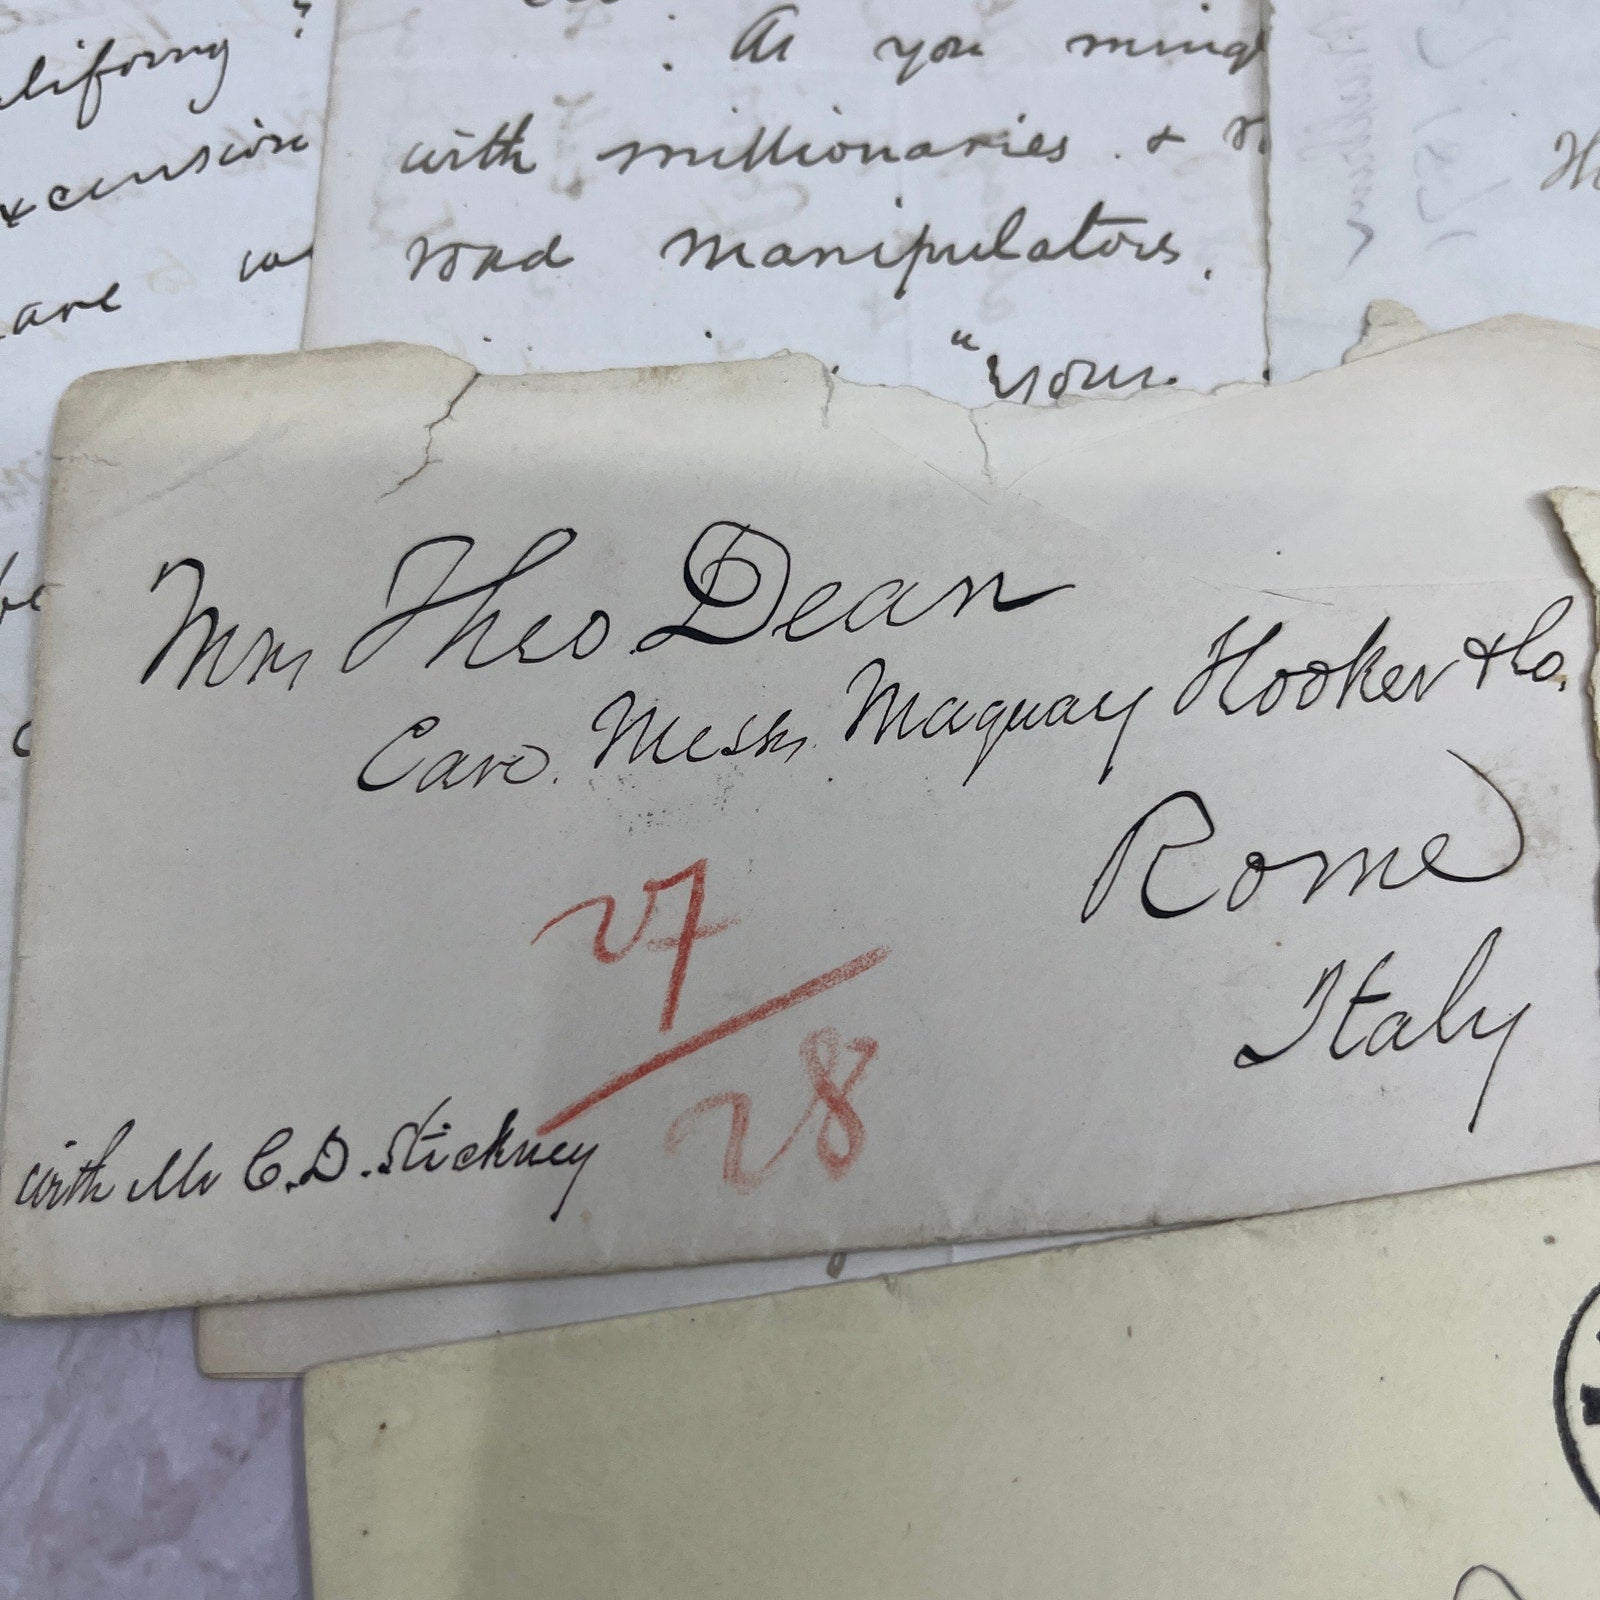 ?
excursion
are
As you
with millionaries &
road manipulators.
"your
Mrs Theo. Dean
Care. Messrs. Maquay Hooker & Co.
Rome
Italy
27
28
with Mr C. D. Stickney